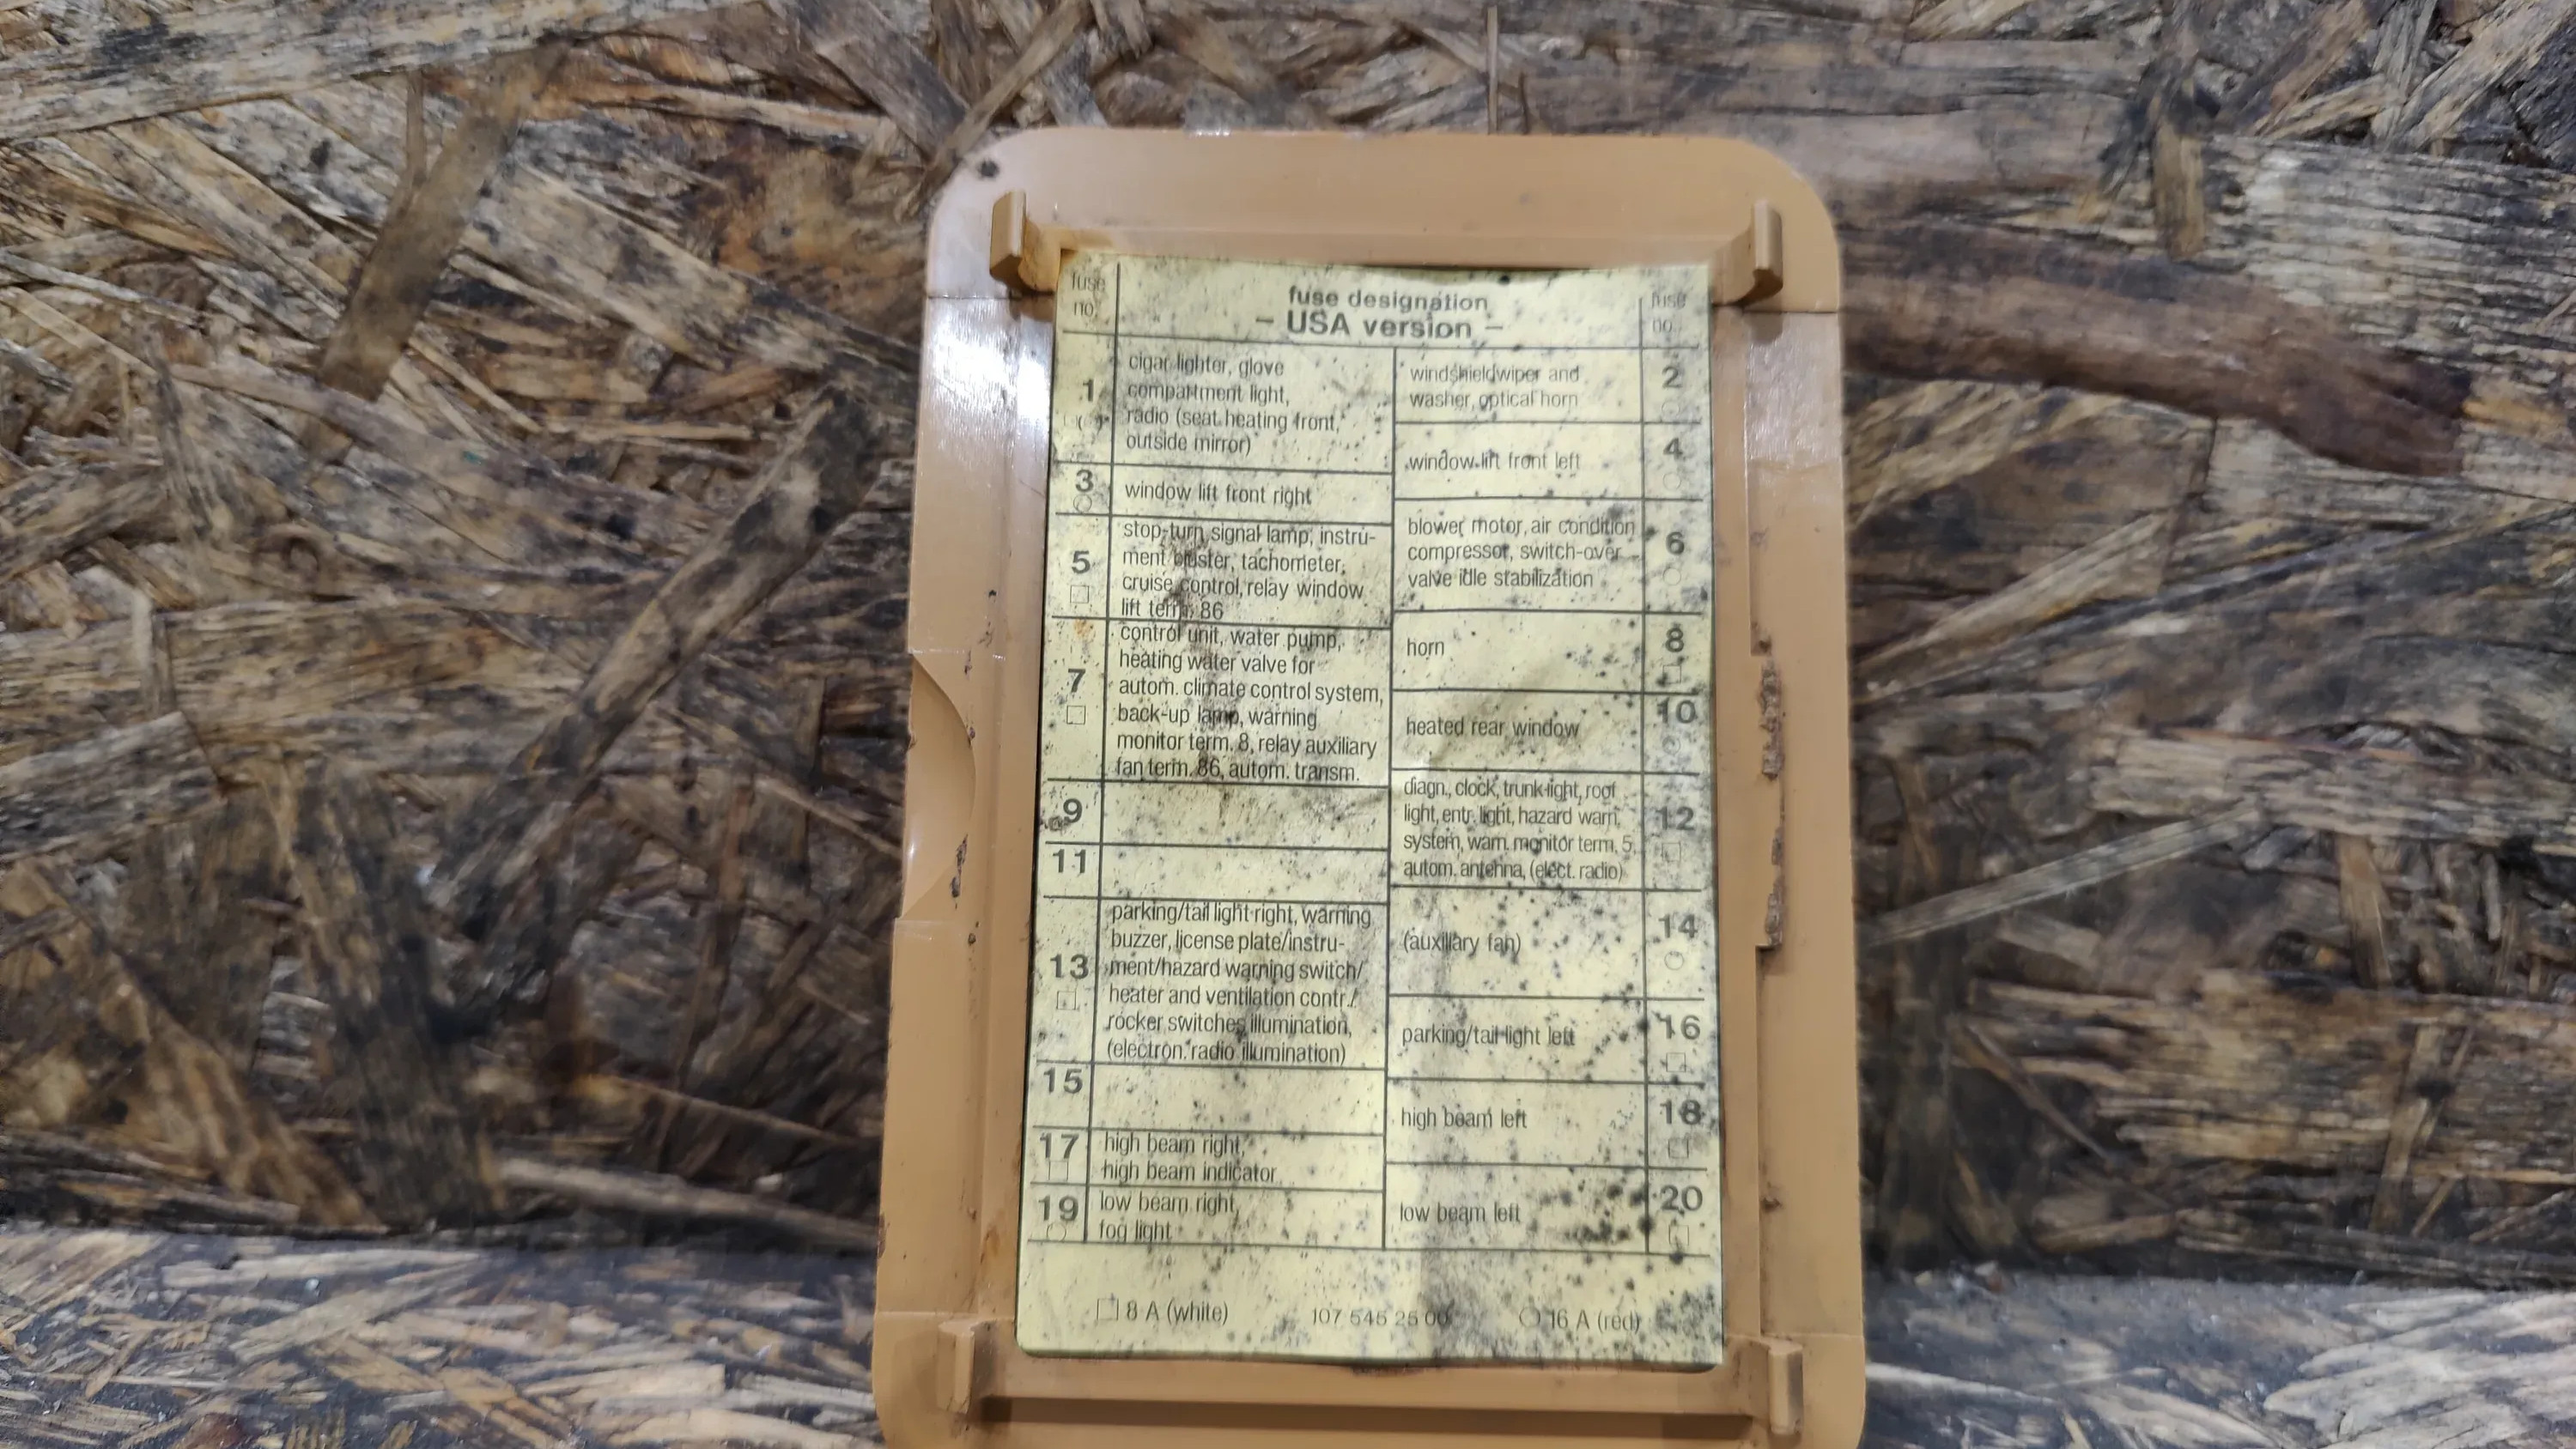 fuse no.
fuse designation
– USA version –
fuse no.
1
cigar lighter, glove
compartment light,
radio (seat heating front,
outside mirror)
windshieldwiper and
washer, optical horn
2
3
window lift front right
window lift front left
4
5
stop-turn signal lamp, instru-
ment cluster, tachometer,
cruise control, relay window
lift term. 86
blower motor, air condition
compressor, switch-over
valve idle stabilization
6
7
control unit, water pump,
heating water valve for
autom. climate control system,
back-up lamp, warning
monitor term. 8, relay auxiliary
fan term. 86, autom. transm.
horn
8
heated rear window
10
9
11
diagn., clock, trunk-light, roof
light, entr. light, hazard warn.
system, warn. monitor term. 5
autom. antenna, (elect. radio)
12
13
parking/tail light right, warning
buzzer, license plate/instru-
ment/hazard warning switch/
heater and ventilation contr./
rocker switches illumination,
(electron. radio illumination)
(auxiliary fan)
14
15
parking/tail light left
16
17
high beam right,
high beam indicator
high beam left
18
19
low beam right,
fog light
low beam left
20
8 A (white)
107 545 25 00
16 A (red)